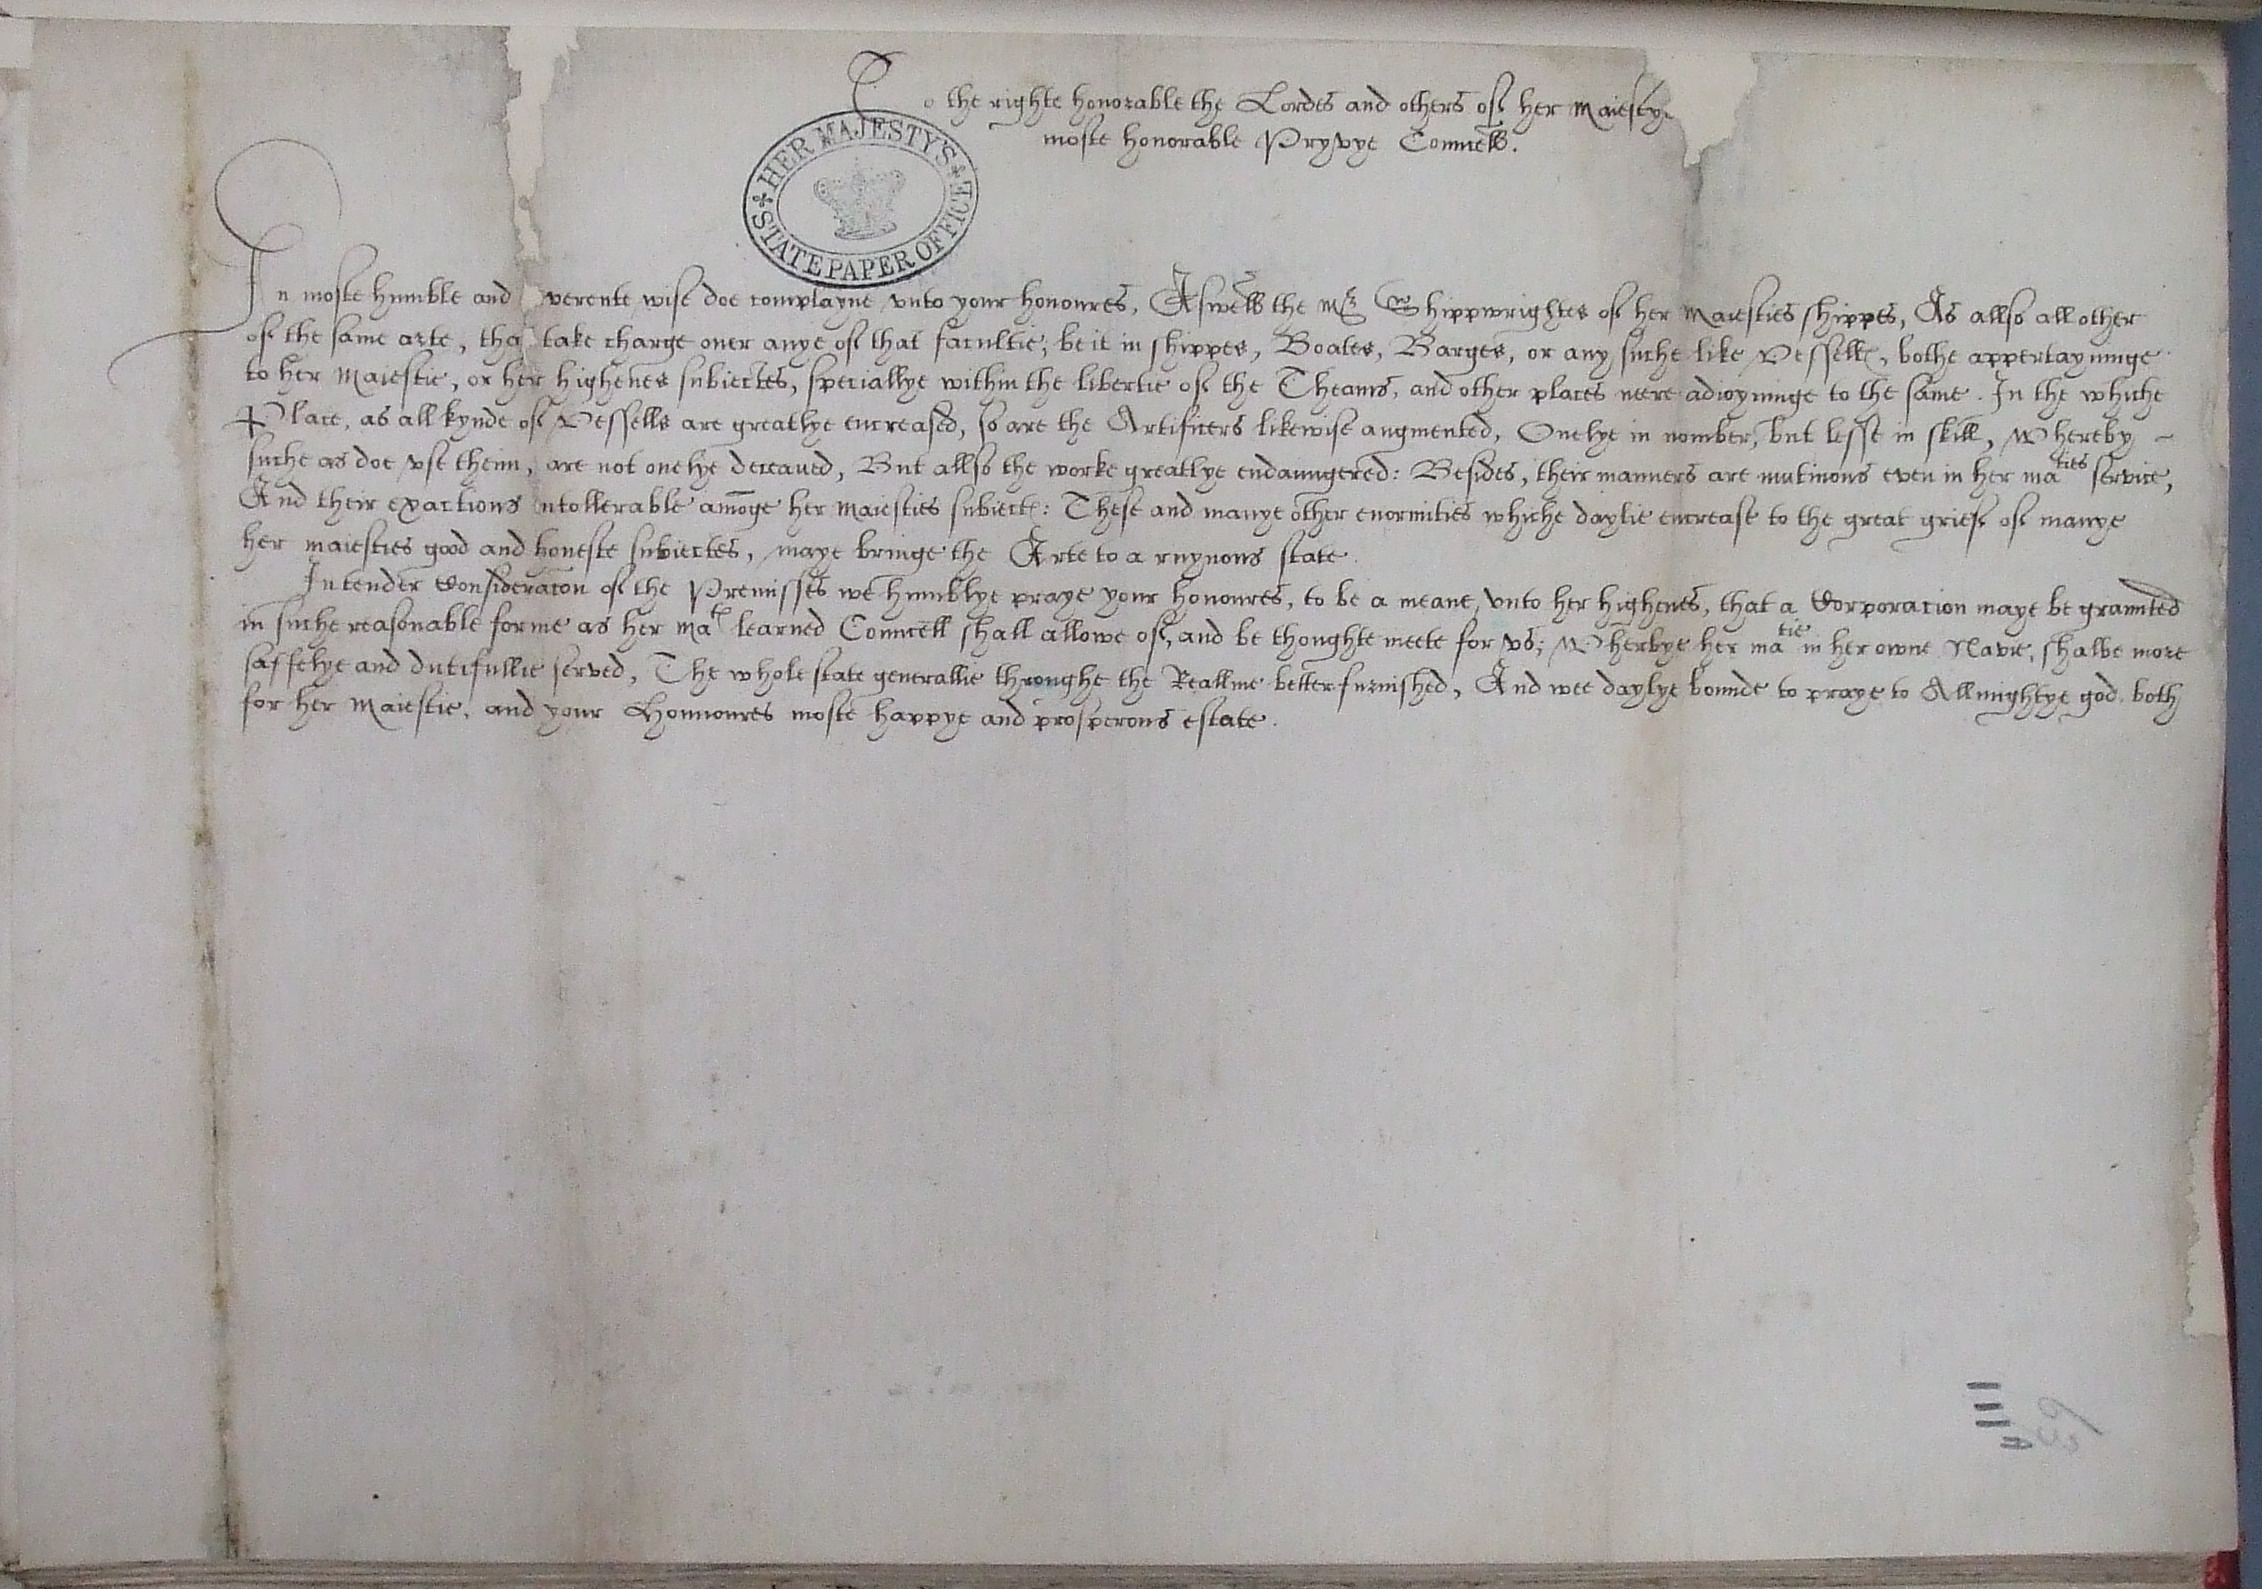 To the righte honorable the Lordes and others of her Maiesty
moste honorable Pryvye Councell.
HER MAJESTY'S STATE PAPER OFFICE
In moste humble and verente wise doe complayne vnto your honoures, Aswell the Mr Shippwrightes of her Maiesties shippes, As allso all other
of the same arte, tha take charge over anye of that facultie; be it in shippes, Boates, Barges, or any suche like Vessells, bothe appertayninge
to her Maiestie, or her highenes subiectes, speciallye within the libertie of the Theams, and other places neere adioyninge to the same. In the whiche
Place, as all kynde of Vessells are greatlye encreased, so are the Artificers likewise augmented, Onelye in nomber, but lesse in skill, Whereby
suche as doe vse theim, are not onelye deceaued, But allso the worke greatlye endaungered: Besides, their manners are mutinous even in her maties service,
And their exactions ntollerable amonge her Maiesties subiectes: These and manye other enormities whiche daylie encrease to the great grief of manye
her maiesties good and honeste subiectes, maye bringe the Arte to a ruynous state.
In tender Consideracon of the Premisses we humblye praye your honoures, to be a meane vnto her highenes, that a Corporacion maye be graunted
in suche reasonable forme as her Mats learned Councell shall allowe of, and be thoughte meete for vs; Wherbye her matie in her owne Navie, shalbe more
saffelye and dutifullie served, The whole state generallie throughe the Reallme better furnished, And wee daylye bounde to praye to Allmightye god both
for her Maiestie, and your Honnoures moste happye and prosperous estate.